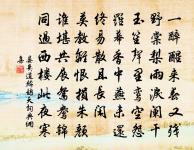 一醉醒來春又殘
野棠梨雨淚闌干
玉笙聲里鸞空怨
羅幕香中燕未還
終易散且長閑
莫教離恨損朱顏
誰堪共展鴛鴦錦
同過西樓此夜寒